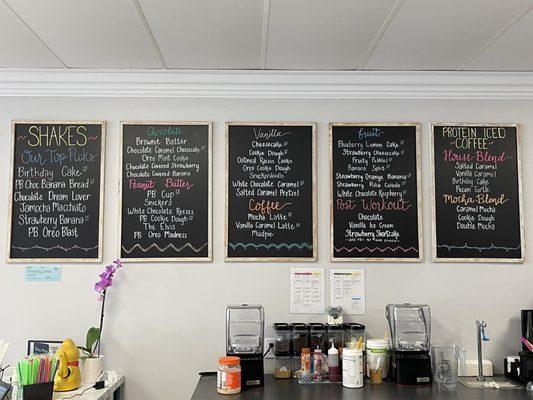 SHAKES
Our Top Picks
Birthday Cake
PB Choc Banana Bread
Chocolate Dream Lover
Jamocha Macchiato
Strawberry Banana
PB Oreo Blast
Chocolate
Brownie Batter
Chocolate Caramel Cheesecake
Oreo Mint Cookie
Chocolate Covered Strawberry
Chocolate Covered Banana
Peanut Butter
PB Cup
Snickers
White Chocolate Reeces
PB Cookie Dough
The Elvis
PB Oreo Madness
Vanilla
Cheesecake
Cookie Dough
Oatmeal Raisin Cookie
Oreo Cookie
Snickerdoodle
White Chocolate Caramel
Salted Caramel Pretzel
Coffee
Mocha Latte
Vanilla Caramel Latte
Mudpie
fruit
Blueberry Lemon Cake
Strawberry Cheesecake
Fruity Pebbles
Banana Split
Strawberry Orange Banana
Strawberry Piña Colada
White Chocolate Raspberry
Post Workout
Chocolate
Vanilla Ice Cream
Strawberry Shortcake
PROTEIN ICED
COFFEE
House Blend
Salted Caramel
Vanilla Caramel
Birthday Cake
Pecan Turtle
Mocha Blend
Caramel Mocha
Cookie Dough
Double Mocha